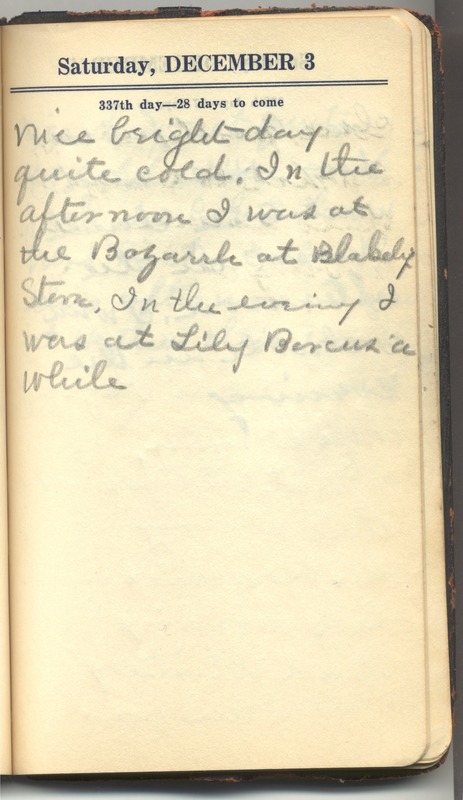 Saturday, DECEMBER 3
337th day—28 days to come
Nice bright day
quite cold. In the
afternoon I was at
the Bozarrh at Blakely
Store. In the evening I
was at Lily Borcus a
while